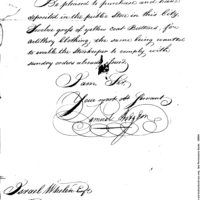 Be pleased to purchase and have
deposited in the public Store in this City
Twelve groce of yellow coat Buttons, for
artillery Clothing, the same being wanted
to enable the Storekeeper to comply with
sundry orders
I am Sir,
Your most ob Servant
Samuel Hodgdon
Israel Whelen Esqr.